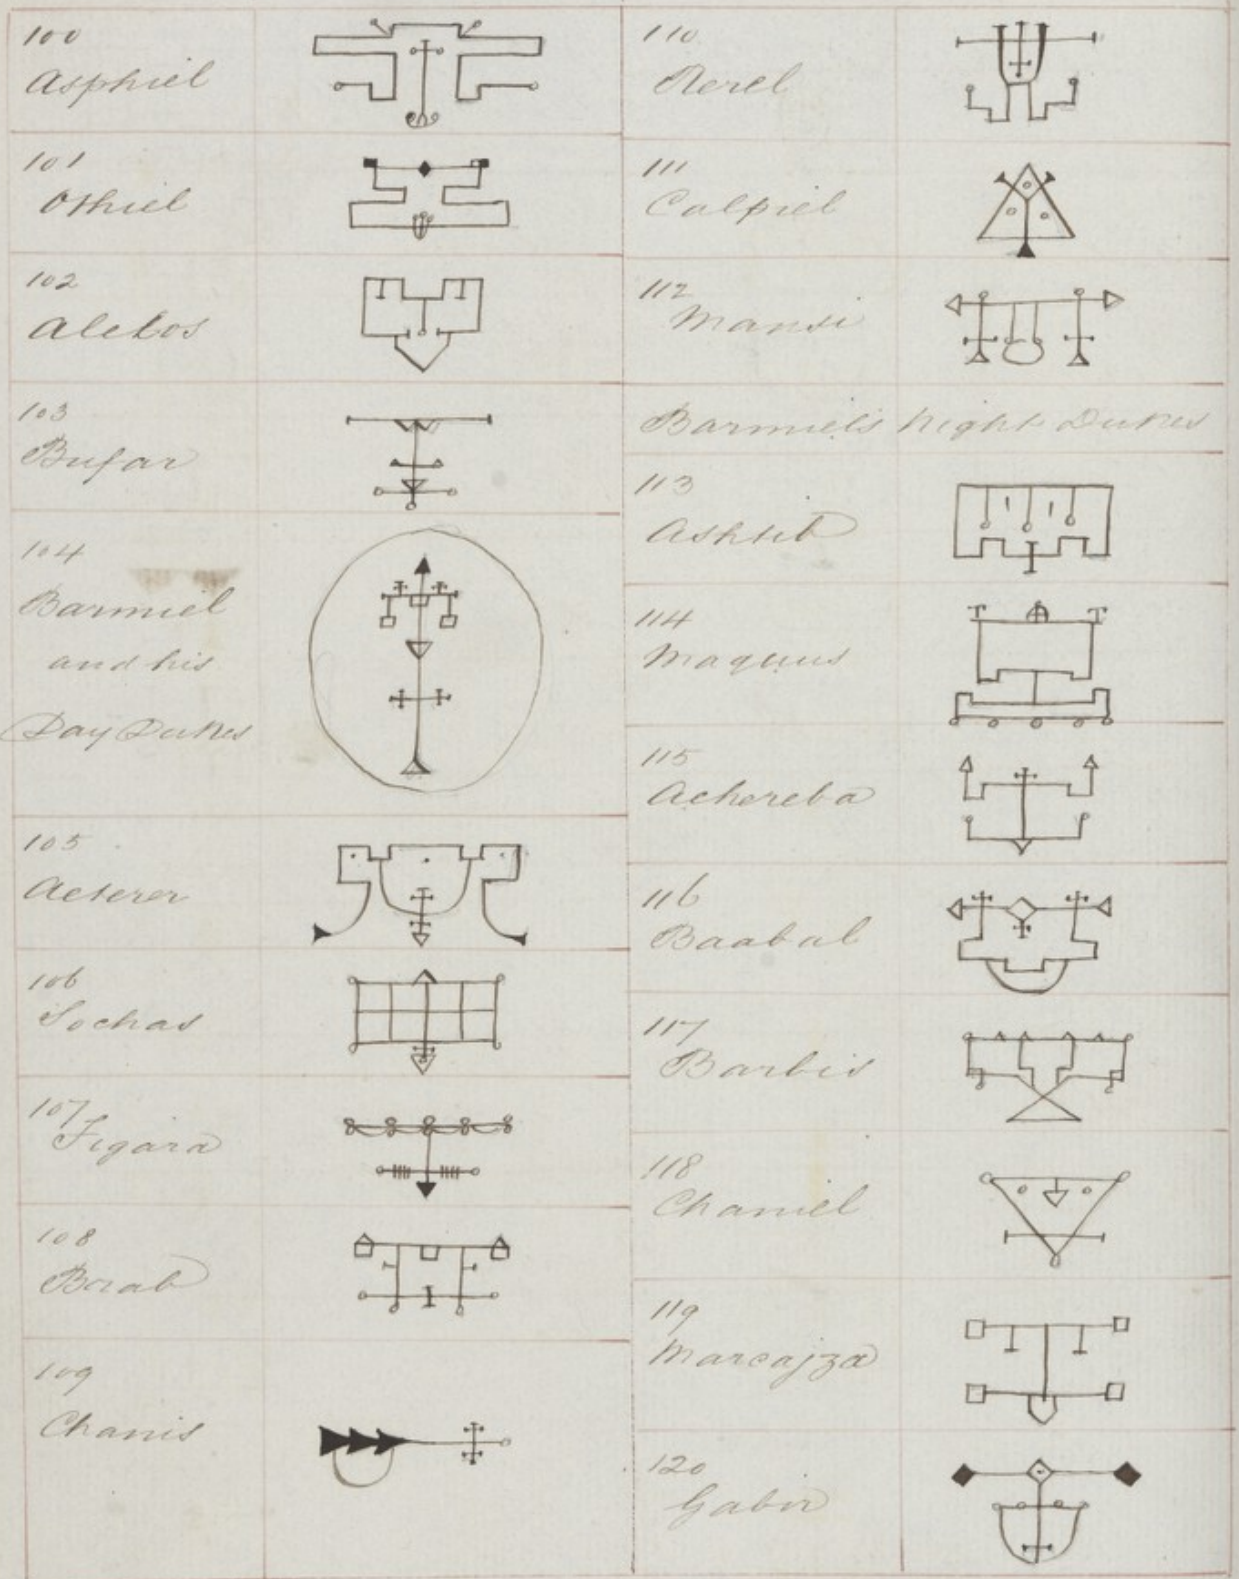 100
Asphiel
101
Othiel
102
Aletos
103
Bufar
104
Barmiel
and his
Day Dukes
105
Acterer
106
Sochas
107
Tigara
108
Barab
109
Chanis
110
Rerel
111
Calpiel
112
Mansi
Barmiel's Night Dukes
113
Ashtib
114
Maquus
115
Achereba
116
Baabal
117
Barbis
118
Chaniel
119
Marcajza
120
Gabir